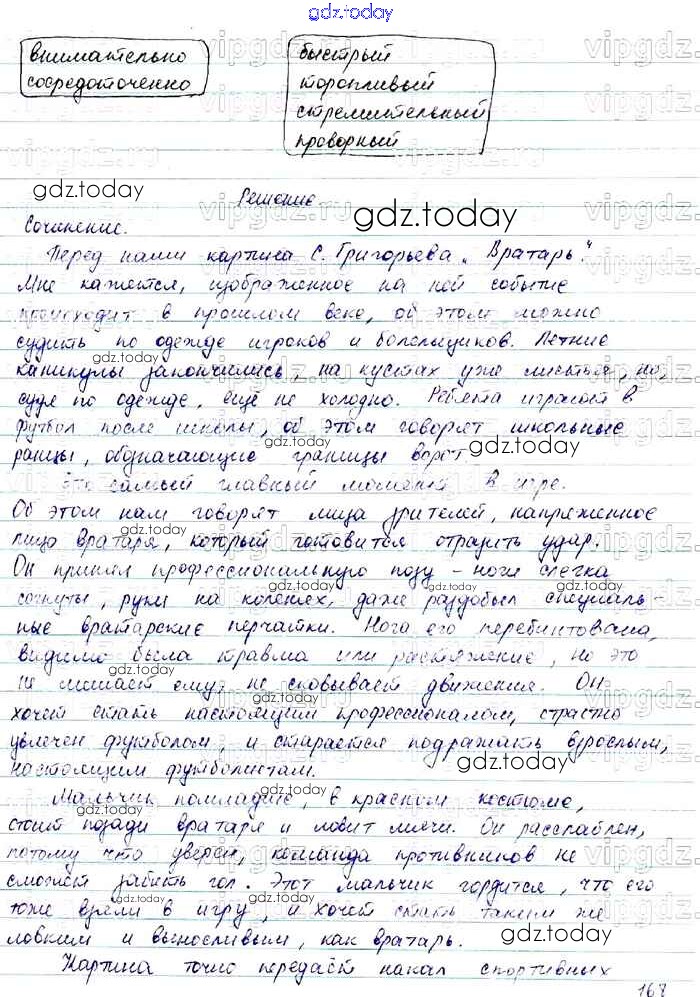 gdz.today
внимательно
сосредоточенно
быстрый
торопливый
стремительный
проворный
Решение
Сочинение.
Перед нами картина С. Григорьева „Вратарь".
Мне кажется, изображенное на ней событие
происходит в прошлом веке, об этом можно
судить по одежде игроков и болельщиков. Летние
каникулы закончились, на кустах уже листья, но,
судя по одежде, ещё не холодно. Ребята играют в
футбол после школы, об этом говорят школьные
ранцы, обозначающие границы ворот.
Это самый главный момент в игре.
Об этом нам говорят лица зрителей, напряженное
лицо вратаря, который готовится отразить удар.
Он принял профессиональную позу – ноги слегка
согнуты, руки на коленях, даже раздобыл специаль-
ные вратарские перчатки. Нога его перебинтована,
видимо была травма или растяжение, но это
не мешает ему, не сковывает движения. Он
хочет стать настоящим профессионалом, страстно
увлечен футболом, и старается подражать взрослым,
настоящим футболистам.
Мальчик помладше, в красном костюме,
стоит позади вратаря и ловит мячи. Он расслаблен,
потому что уверен, команда противников не
сможет забить гол. Этот мальчик гордится, что его
тоже взяли в игру, и хочет стать таким же
ловким и выносливым, как вратарь.
Картина точно передаёт накал спортивных
168